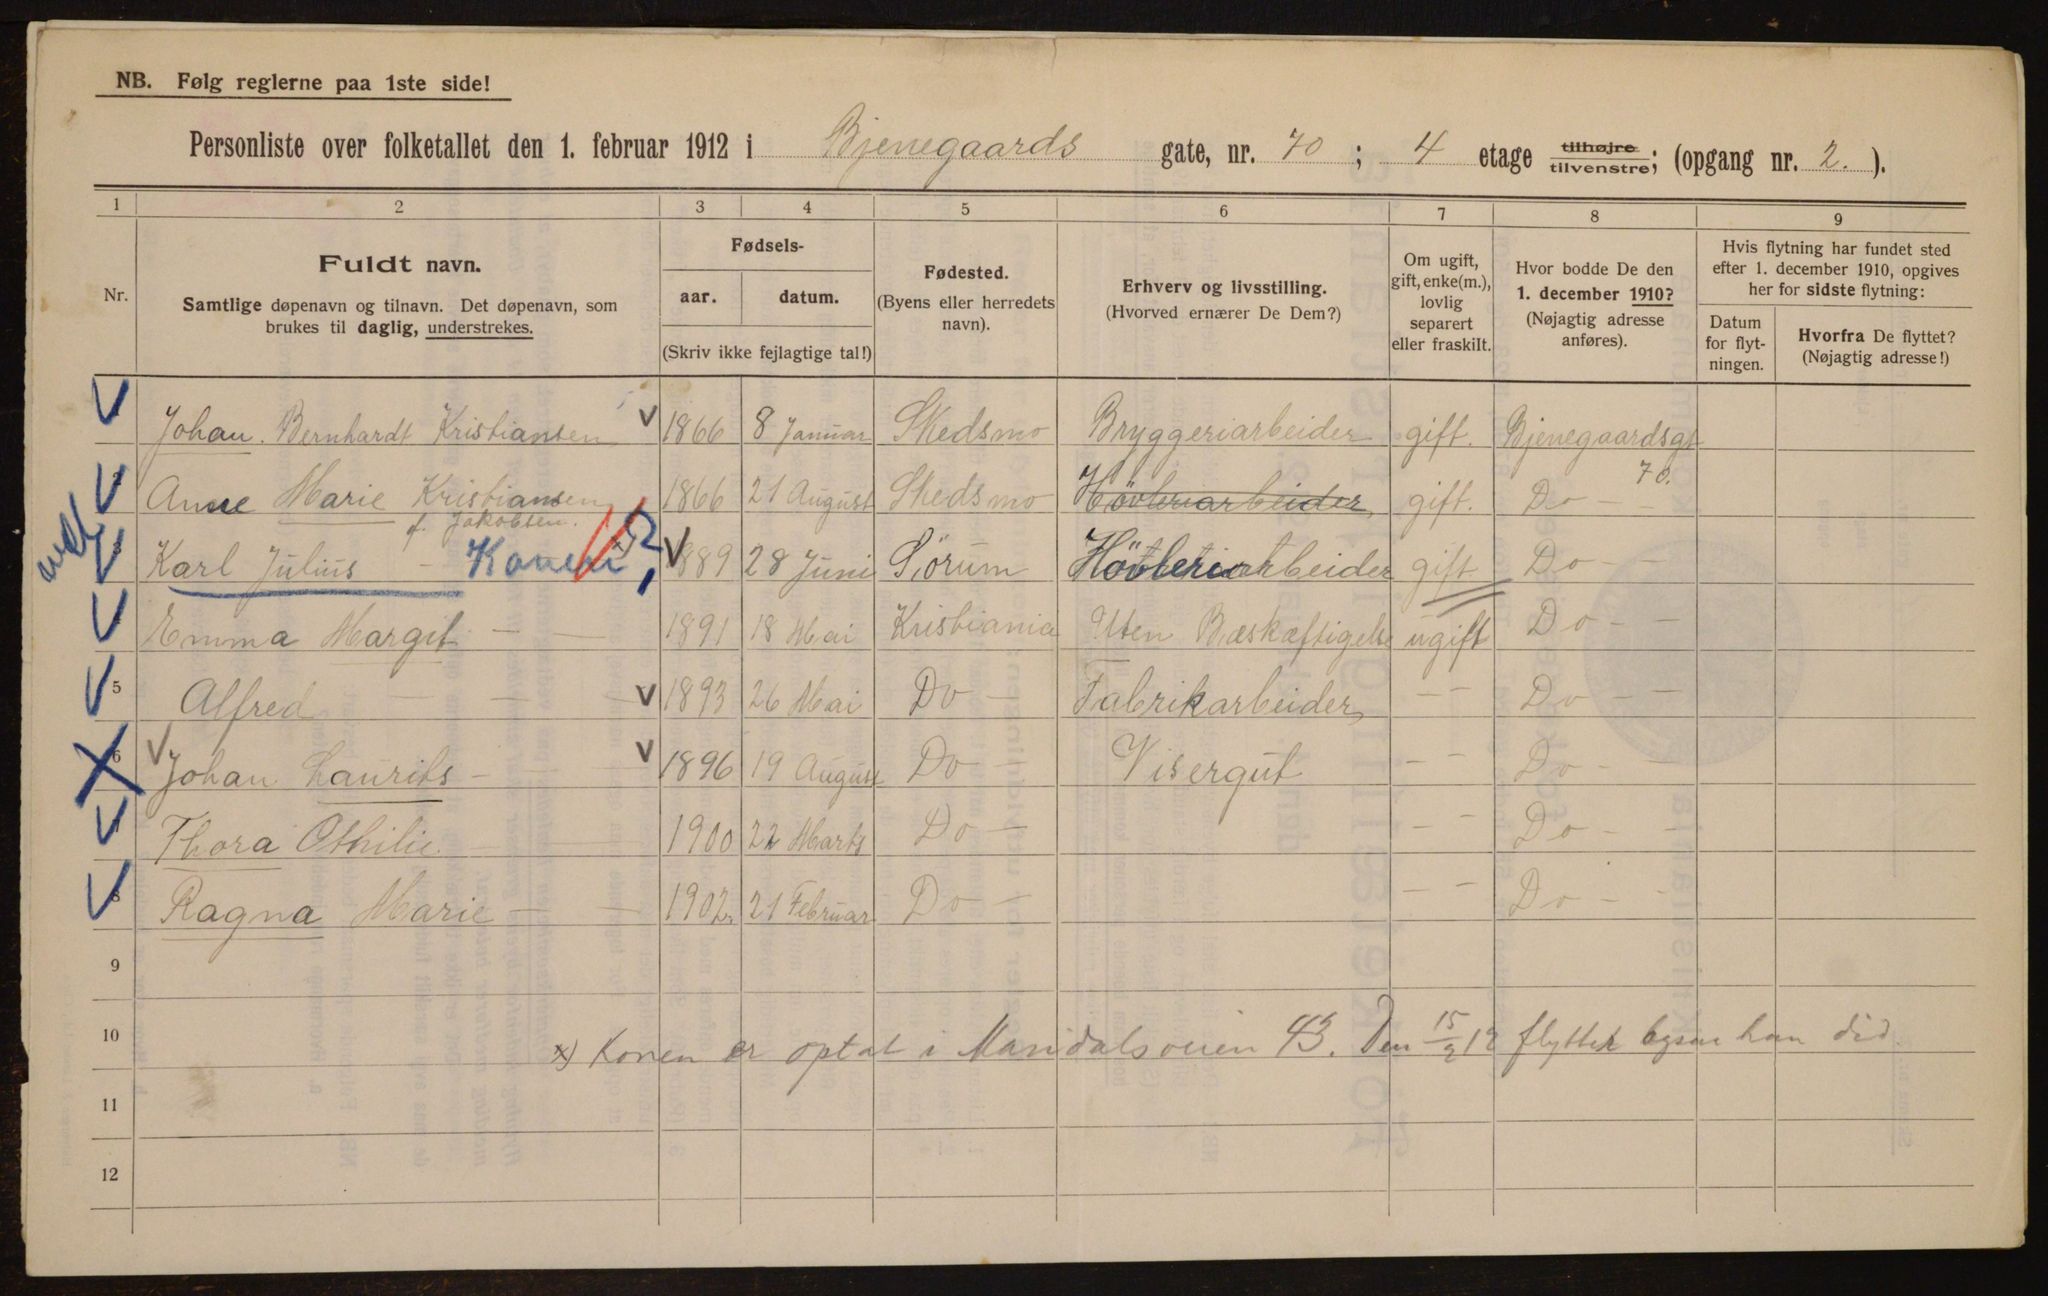 NB. Følg reglerne paa 1ste side!
Personliste over folketallet den 1. februar 1912 i Bjenegaards gate, nr. 70 ; 4 etage tilhøjre tilvenstre; (opgang nr. 2. ).
1 2 3 4 5 6 7 8 9
Nr.
Fuldt navn.
Samtlige døpenavn og tilnavn. Det døpenavn, som
brukes til daglig, understrekes.
Fødsels-
aar. datum.
(Skriv ikke fejlagtige tal!)
Fødested.
(Byens eller herredets
navn).
Erhverv og livsstilling.
(Hvorved ernærer De Dem?)
Om ugift,
gift, enke(m.),
lovlig
separert
eller fraskilt.
Hvor bodde De den
1. december 1910?
(Nøjagtig adresse
anføres).
Hvis flytning har fundet sted
efter 1. december 1910, opgives
her for sidste flytning:
Datum
for flyt-
ningen.
Hvorfra De flyttet?
(Nøjagtig adresse!)
Johan. Bernhardt Kristiansen 1866 8 Januar Skedsmo Bryggeriarbeider gift. Bjenegaardsgt
70.
Anne Marie Kristiansen 1866 21 August Skedsmo Hövleriarbeider, gift. Do —
f. Jakobsen.
3 Karl Julius — Konen x) ? 1889 28 Juni Sörum Hövleriarbeider gift Do — —
Emma Margit — — 1891 18 Mai Kristiania Uten Bæskæftigelse ugift Do — —
5 Alfred — — 1893 26 Mai Do — Fabrikarbeider — — Do — —
6 Johan Laurits — — 1896 19 August Do — Visergut — — Do — —
Thora Othilie. 1900 22 Marts Do — — — Do — —
8 Ragna Marie — — 1902. 21 Februar Do — — — Do — —
9
10
x) Konen er optat i Mandalsveien 43. Den 15/2 12 flytter han did
11
12